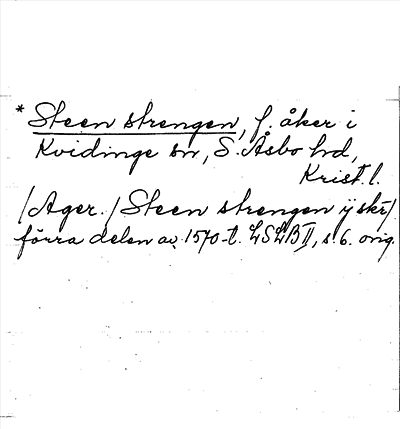 * Steen strengen, f. åker i
Kvidinge sn, S. Åsbo hd,
Krist. l.
/Ager./ Steen strengen ij skr/
förra delen av 1570-t. LSLB II, s. 6. orig.